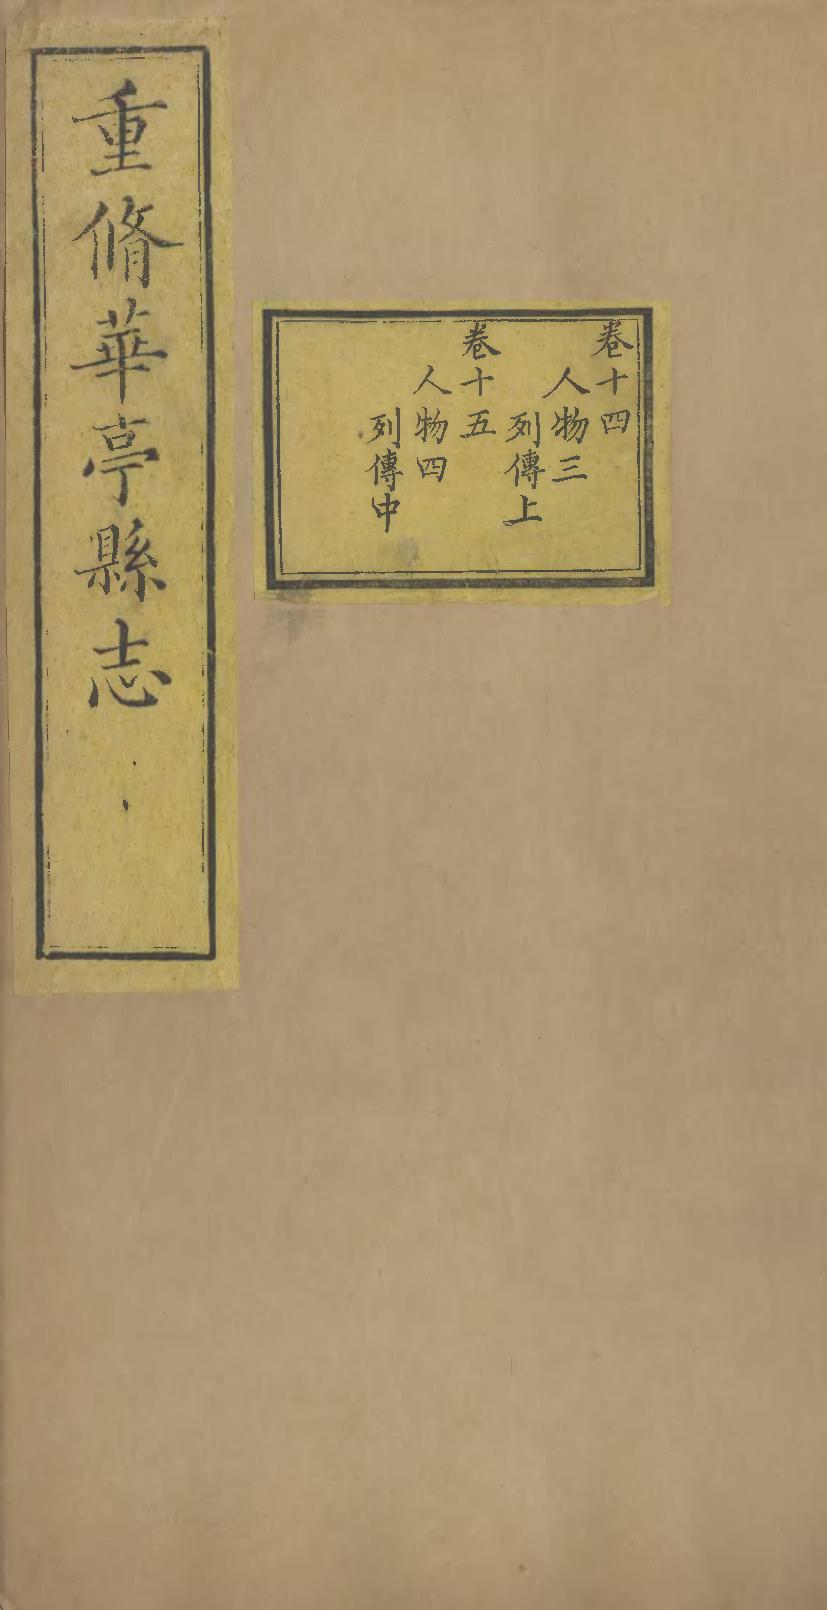 重脩華亭縣志
卷十四
人物三
列傳上
卷十五
人物四
列傳中